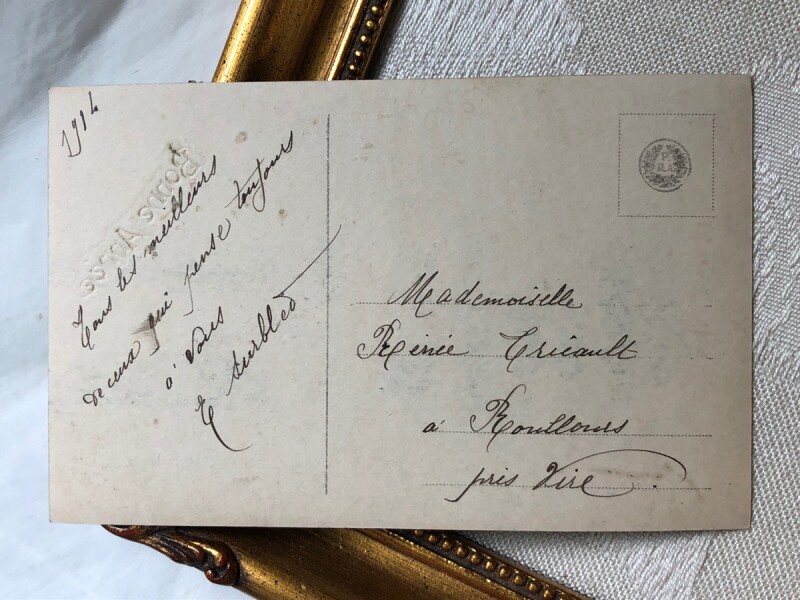 1914
Bonne Année
Tous les meilleurs
vœux qui pense toujours
à vous
E Surbled
Mademoiselle
Rénée Tricault
à Roullours
près Vire